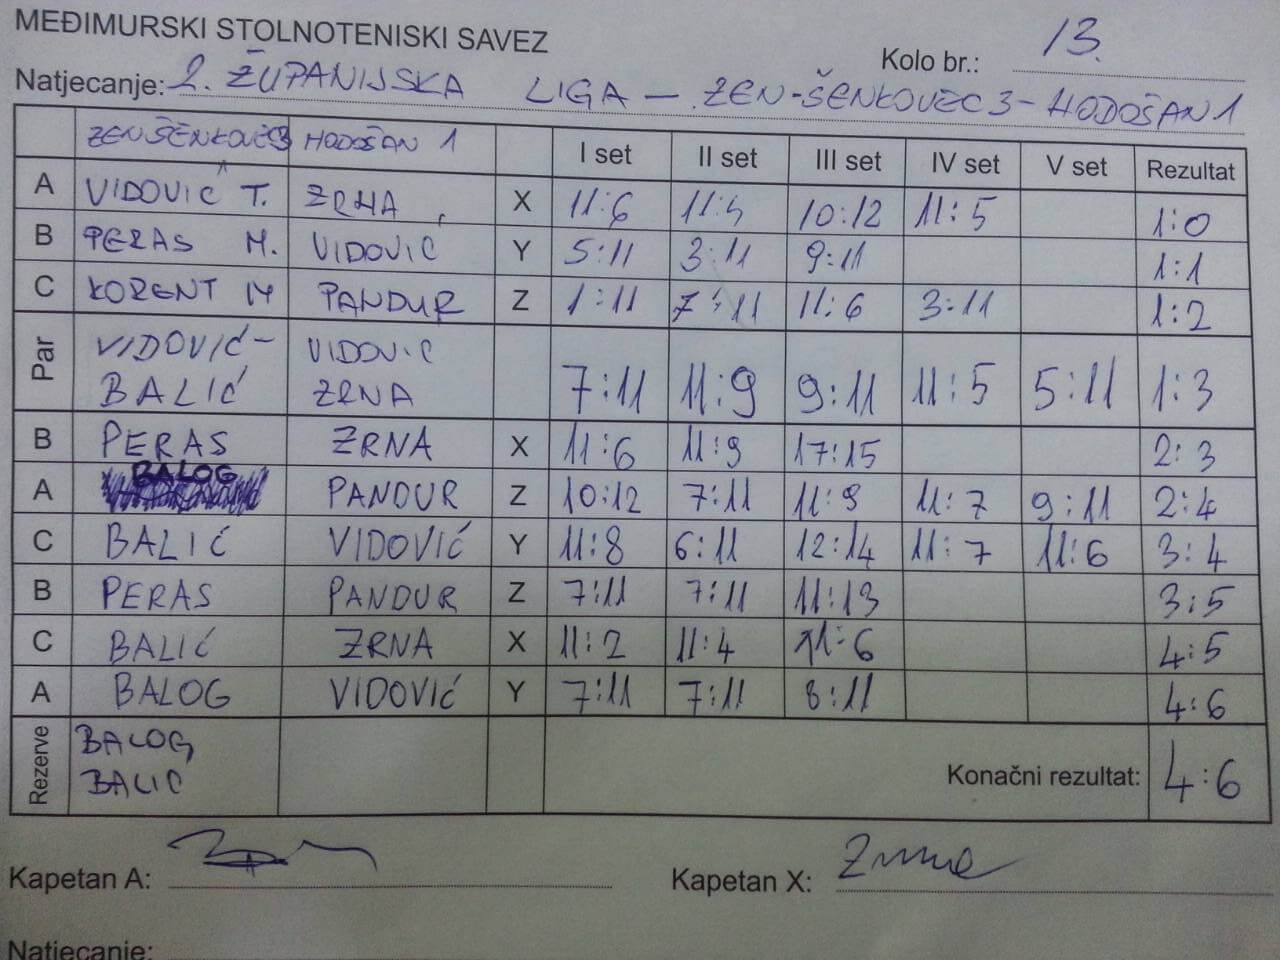 MEĐIMURSKI STOLNOTENISKI SAVEZ
Kolo br.: 13.
Natjecanje: 2. ŽUPANIJSKA LIGA – ZEN-ŠENKOVEC 3 – HODOŠAN 1
ZEN ŠENKOVEC 3 HODOŠAN 1 I set II set III set IV set V set Rezultat
A VIDOVIĆ T. ZRNA X 11:6 11:5 10:12 11:5 1:0
B PERAS M. VIDOVIĆ Y 5:11 3:11 9:11 1:1
C KORENT M PANDUR Z 1:11 7:11 11:6 3:11 1:2
Par VIDOVIĆ- VIDOVIC
BALIĆ ZRNA 7:11 11:9 9:11 11:5 5:11 1:3
B PERAS ZRNA X 11:6 11:9 17:15 2:3
A BALOG PANDUR Z 10:12 7:11 11:9 11:7 9:11 2:4
C BALIĆ VIDOVIĆ Y 11:8 6:11 12:14 11:7 11:6 3:4
B PERAS PANDUR Z 7:11 7:11 11:13 3:5
C BALIĆ ZRNA X 11:2 11:4 11:6 4:5
A BALOG VIDOVIĆ Y 7:11 7:11 8:11 4:6
Rezerve BALOG
BALIĆ
Konačni rezultat: 4:6
Kapetan A:
Kapetan X: Zrna
Natjecanje: